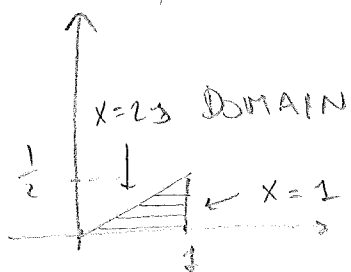 x=2y DOMAIN
1/2
x=1
1